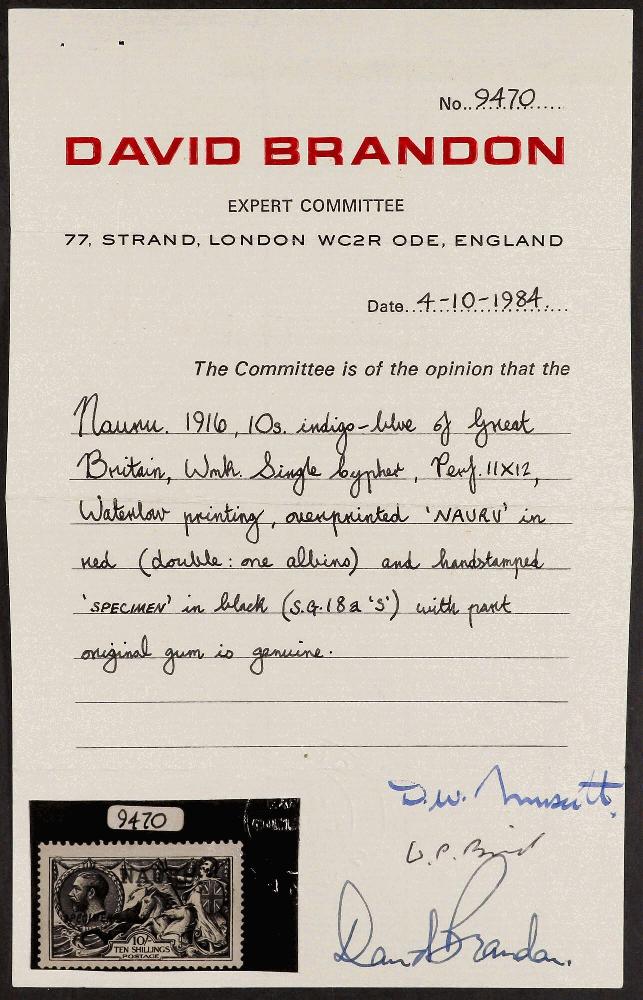 No..9470....
DAVID BRANDON
EXPERT COMMITTEE
77, STRAND, LONDON WC2R ODE, ENGLAND
Date..4-10-1984....
The Committee is of the opinion that the
Nauru. 1916, 10s. indigo-blue of Great
Britain, Wmk. Single Cypher, Perf. 11X12,
Waterlow printing, overprinted 'NAURU' in
red (double: one albino) and handstamped
'SPECIMEN' in black (S.G.18a 'S') with part
original gum is genuine.
9470
NAURU
SPECIMEN
10/-
TEN SHILLINGS
POSTAGE
D.W.
David Brandon.